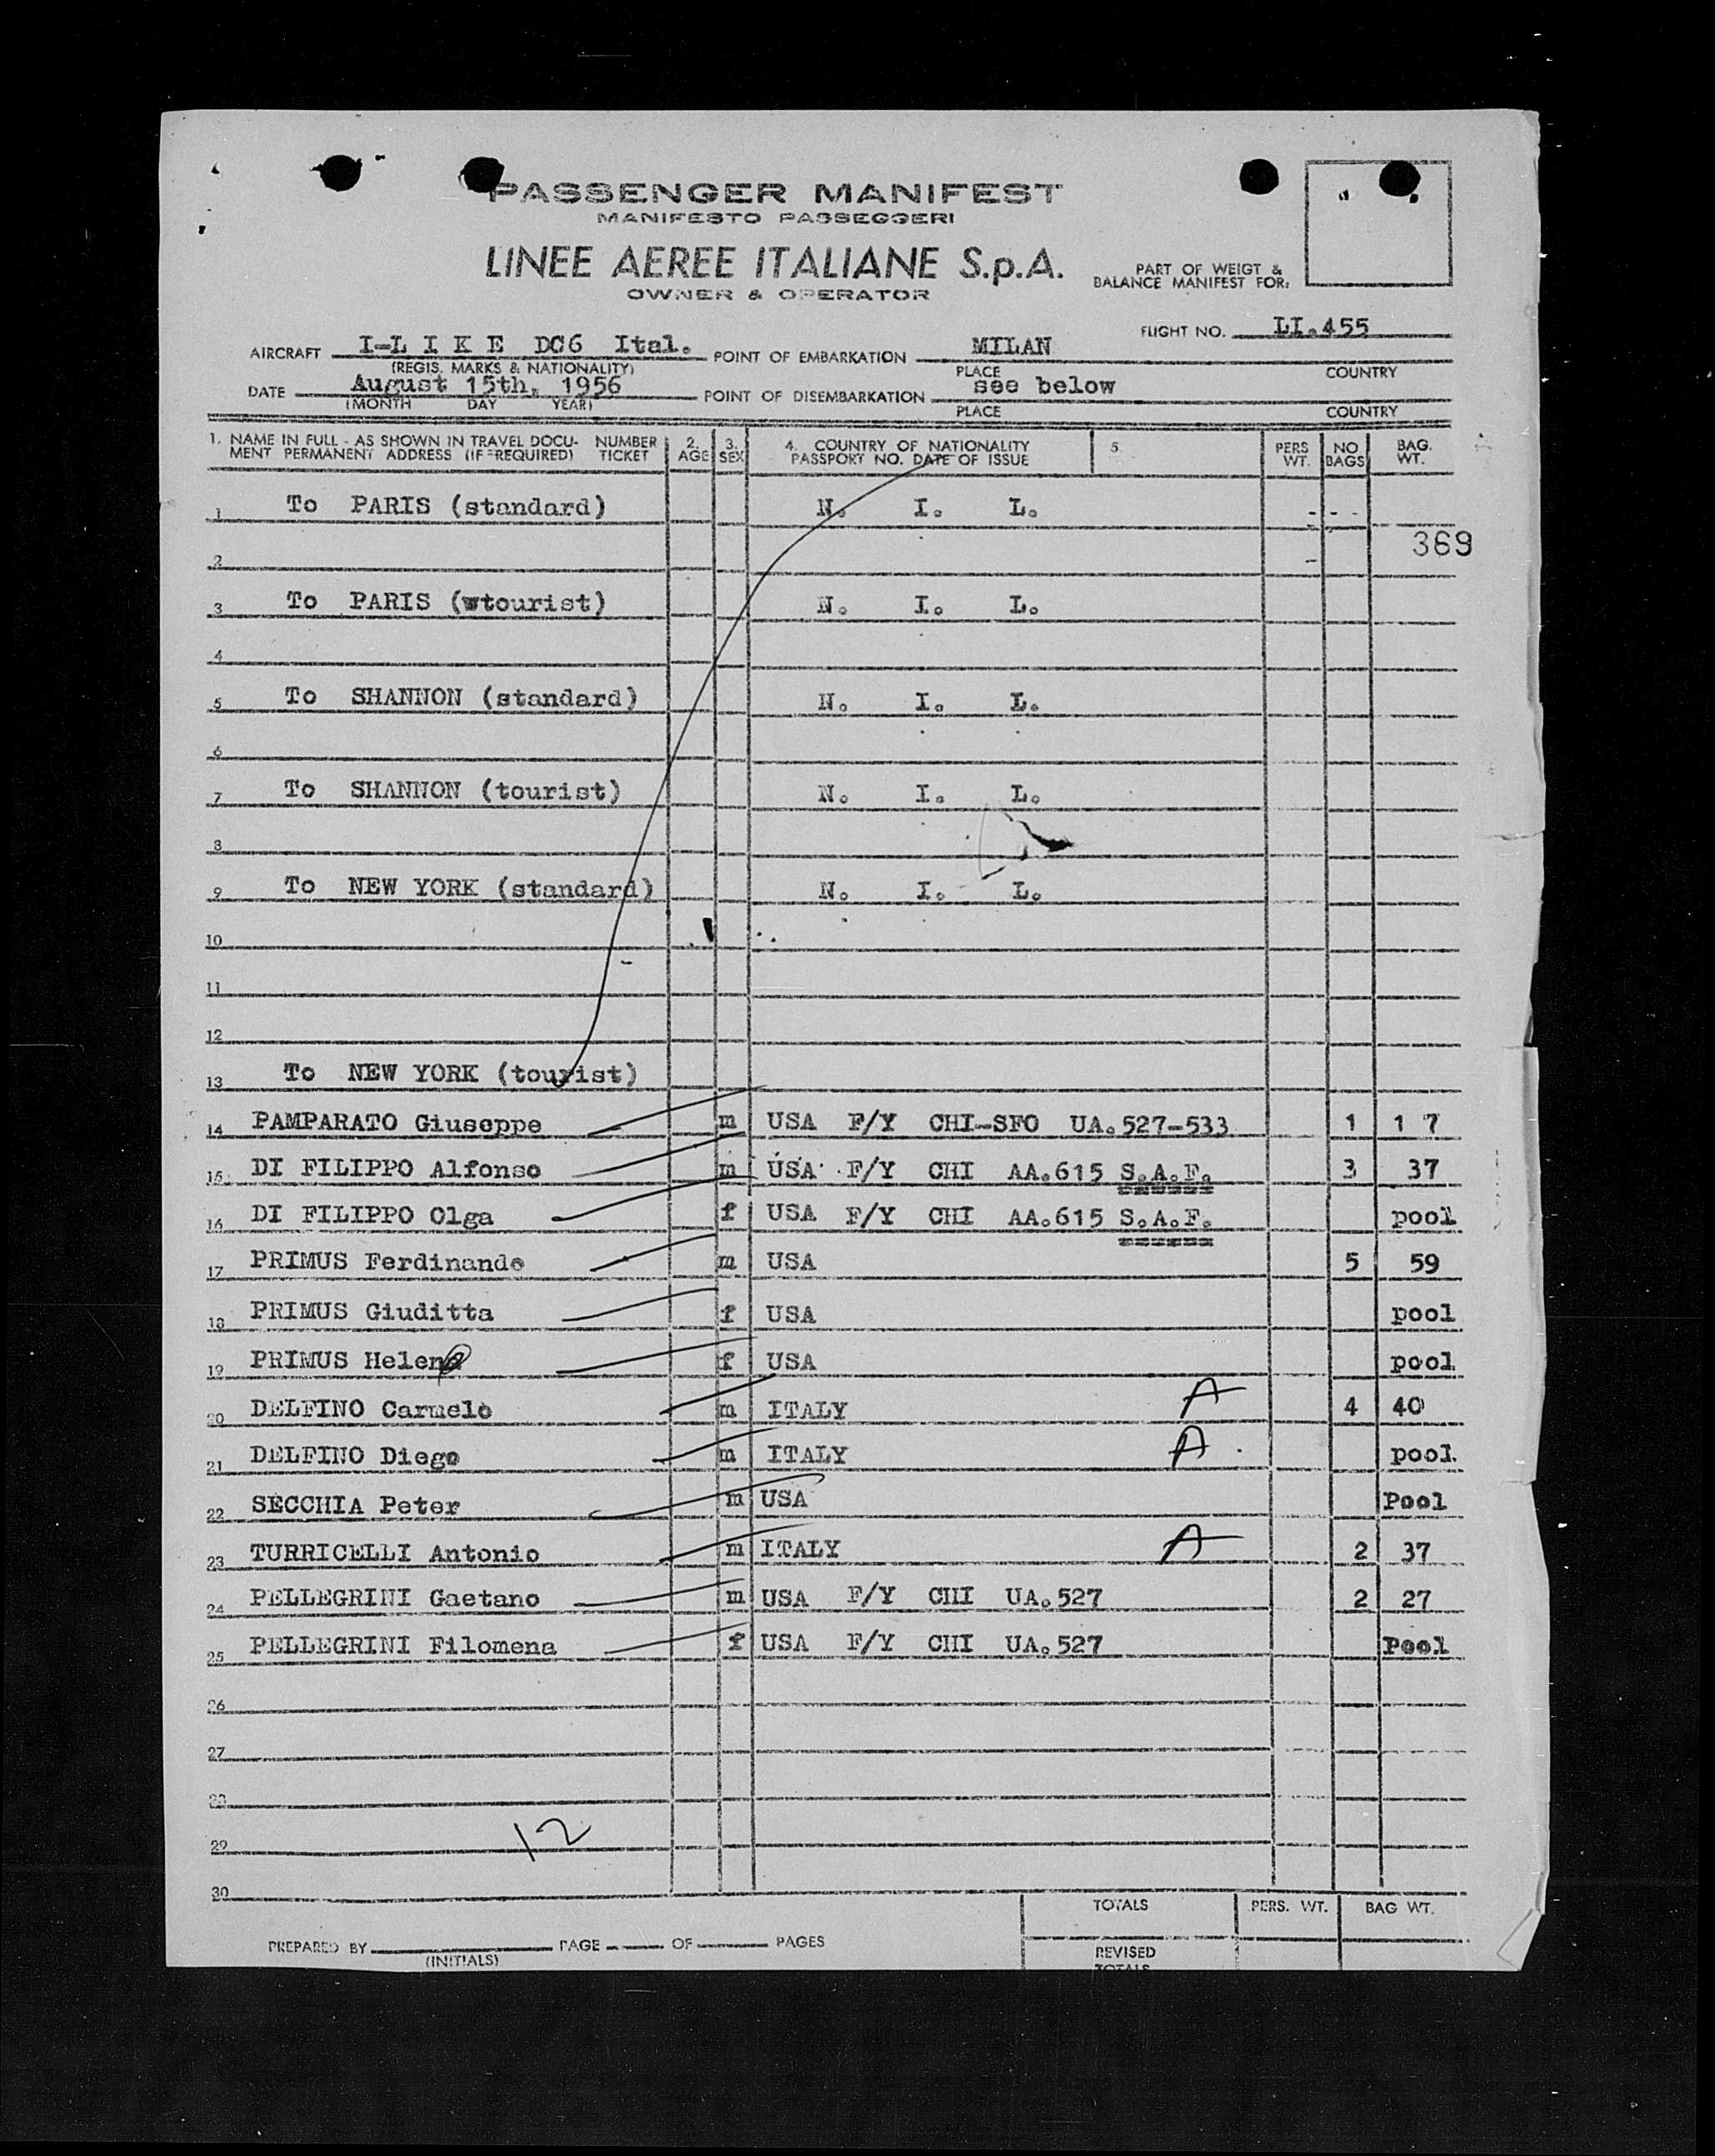 PASSENGER MANIFEST
MANIFESTO PASSEGGERI
LINEE AEREE ITALIANE S.p.A.
OWNER & OPERATOR
PART OF WEIGT &
BALANCE MANIFEST FOR:
FLIGHT NO. LI.455
AIRCRAFT I-L I K E DC6 Ital. POINT OF EMBARKATION MILAN
(REGIS. MARKS & NATIONALITY) PLACE COUNTRY
DATE August 15th, 1956 POINT OF DISEMBARKATION see below
(MONTH DAY YEAR) PLACE COUNTRY
1. NAME IN FULL - AS SHOWN IN TRAVEL DOCU- NUMBER 2. 3. 4. COUNTRY OF NATIONALITY 5. PERS NO BAG.
MENT PERMANENT ADDRESS (IF REQUIRED) TICKET AGE SEX PASSPORT NO. DATE OF ISSUE WT. BAGS WT.
1 To PARIS (standard) N. I. L. - - -
369
2
3 To PARIS (wtourist) N. I. L.
4
5 To SHANNON (standard) N. I. L.
6
7 To SHANNON (tourist) N. I. L.
8
9 To NEW YORK (standard) N. I. L.
10
11
12
13 To NEW YORK (tourist)
14 PAMPARATO Giuseppe m USA F/Y CHI-SFO UA.527-533 1 1 7
15 DI FILIPPO Alfonso m USA F/Y CHI AA.615 S.A.F. 3 37
16 DI FILIPPO Olga f USA F/Y CHI AA.615 S.A.F. pool
17 PRIMUS Ferdinando m USA 5 59
18 PRIMUS Giuditta f USA pool
19 PRIMUS Helen f USA pool
20 DELFINO Carmelo m ITALY A 4 40
21 DELFINO Diego m ITALY A pool
22 SECCHIA Peter m USA Pool
23 TURRICELLI Antonio m ITALY A 2 37
24 PELLEGRINI Gaetano m USA F/Y CHI UA.527 2 27
25 PELLEGRINI Filomena f USA F/Y CHI UA.527 Pool
26
27
28
29 12
30
TOTALS PERS. WT. BAG WT.
PREPARED BY PAGE OF PAGES
(INITIALS) REVISED
TOTALS